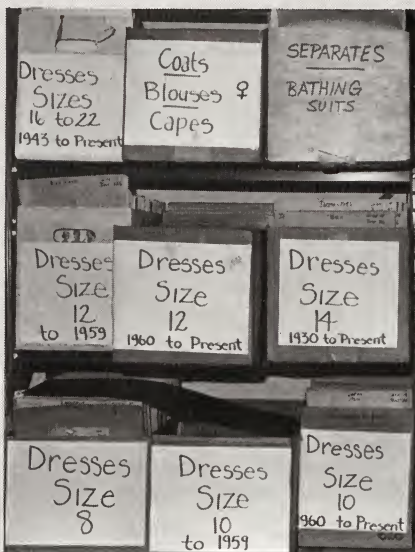 Dresses
Sizes
16 to 22
1943 to Present
Coats
Blouses ♀
Capes
SEPARATES
BATHING
SUITS
Dresses
Size
12
to 1959
Dresses
Size
12
1960 to Present
Dresses
Size
14
1930 to Present
Dresses
Size
8
Dresses
Size
10
to 1959
Dresses
Size
10
1960 to Present